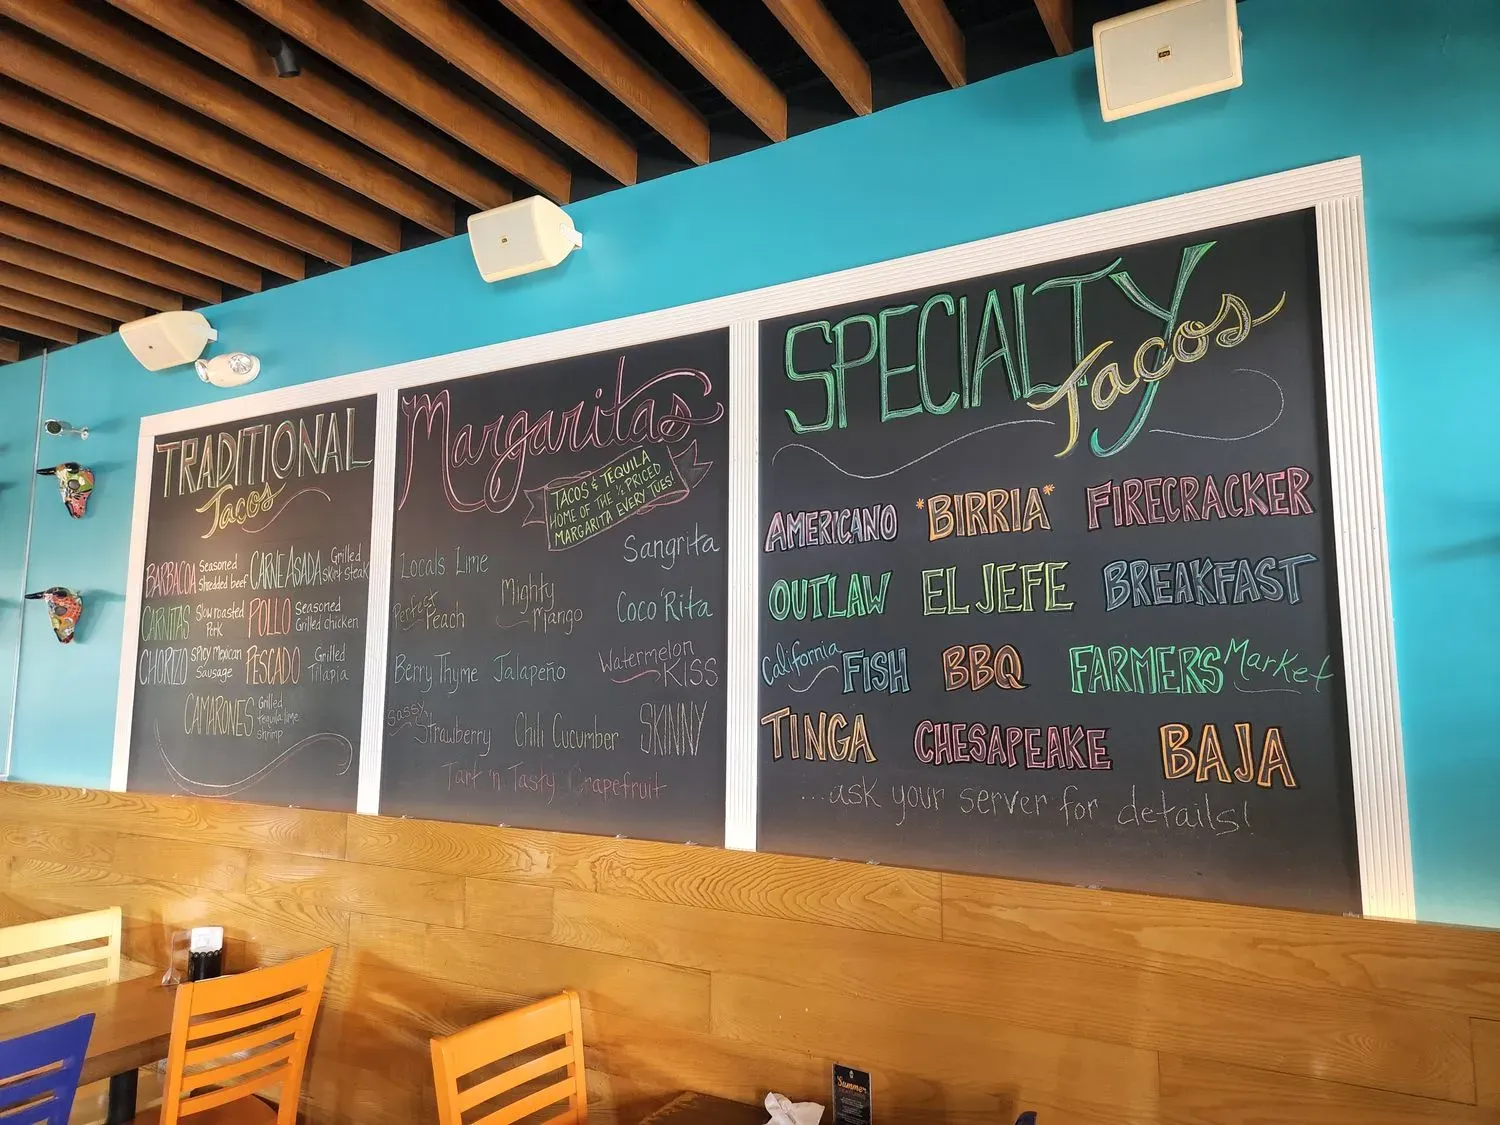 TRADITIONAL
Tacos
BARBACOA Seasoned Shredded beef
CARNE ASADA Grilled skirt steak
CARNITAS Slow roasted Pork
POLLO Seasoned Grilled chicken
CHORIZO SPICY Mexican Sausage
PESCADO Grilled Tilapia
CAMARONES Grilled tequila lime shrimp
Margaritas
TACOS & TEQUILA
HOME OF THE ½ PRICED
MARGARITA EVERY TUES!
Sangrita
Locals Lime
Mighty Mango
Coco'Rita
Perfect Peach
Watermelon KISS
Berry Thyme
Jalapeño
Sassy Strawberry
Chili Cucumber
SKINNY
Tart 'n Tasty Grapefruit
SPECIALTY
Tacos
AMERICANO
*BIRRIA*
FIRECRACKER
OUTLAW
EL JEFE
BREAKFAST
California FISH
BBQ
FARMERS Market
TINGA
CHESAPEAKE
BAJA
...ask your server for details!
Summer